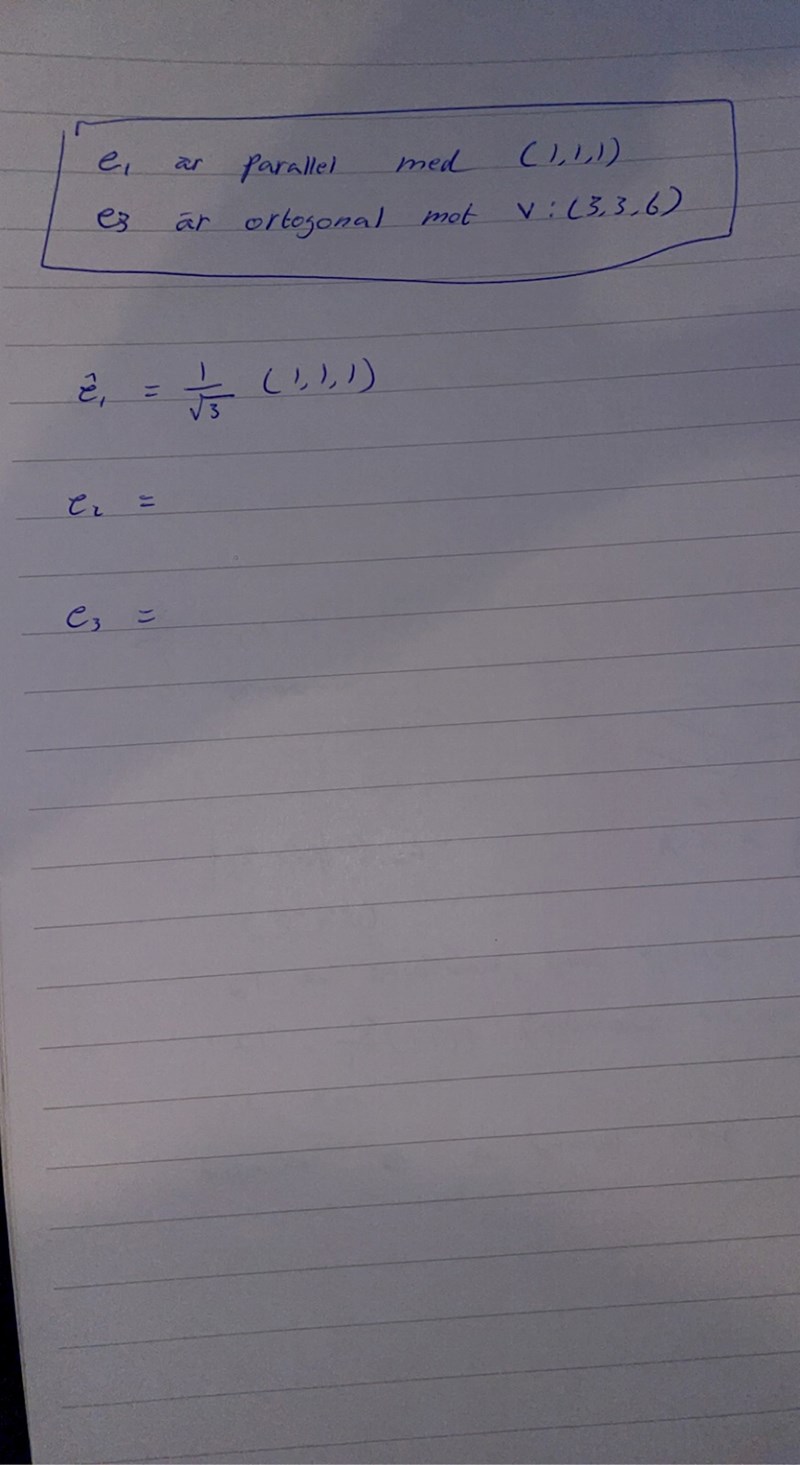 e₁ är parallel med (1,1,1)
e₃ är ortogonal mot v:(3,3,6)
ê₁ = 1/√3 (1,1,1)
e₂ =
e₃ =